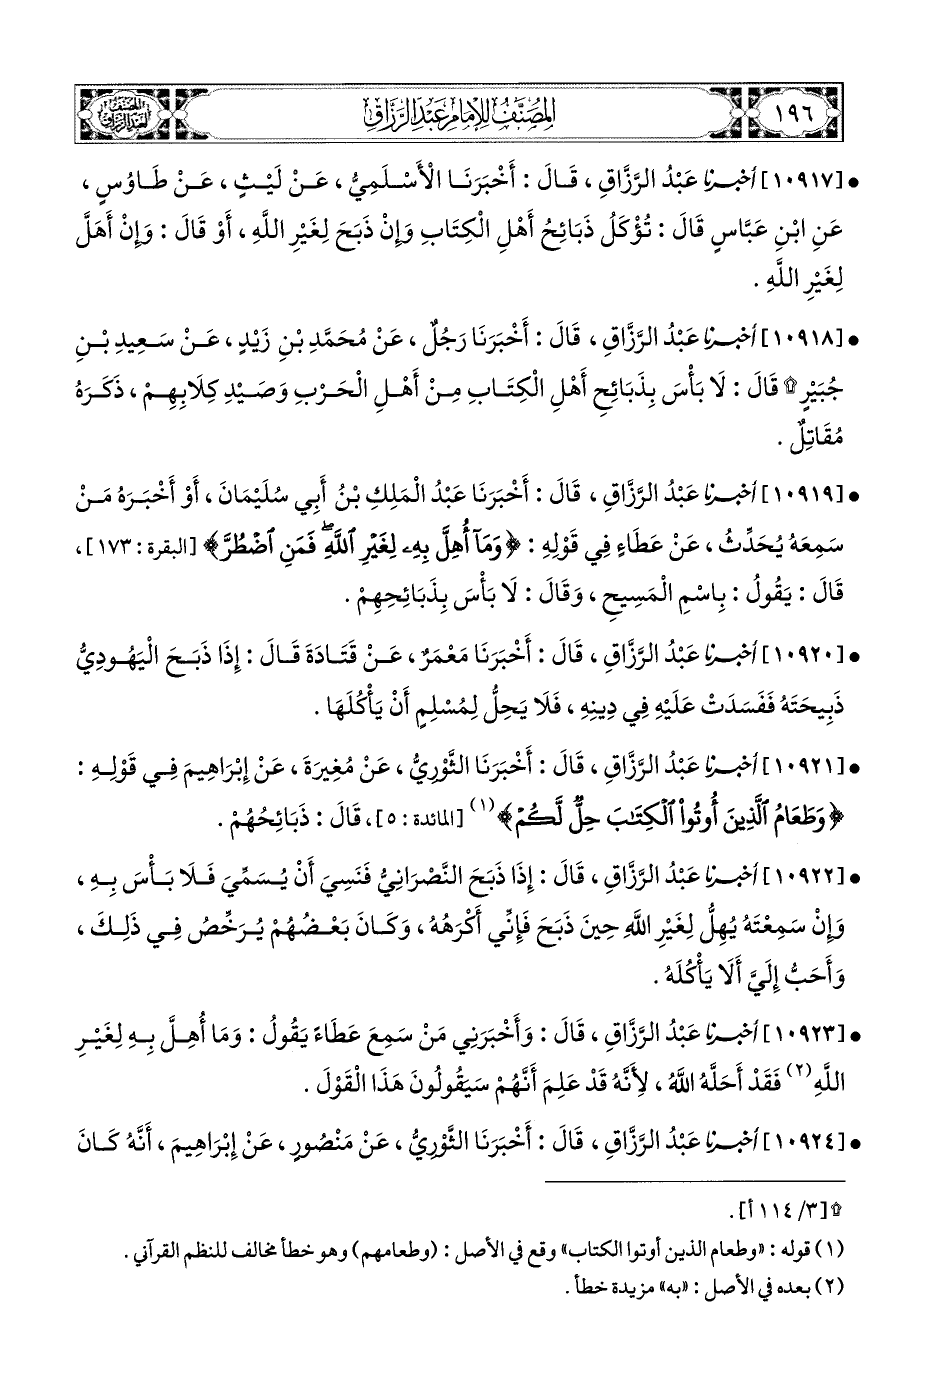 ١٩٦
المصنف للإمام عبد الرزاق
• [١٠٩١٧] أخبرنا عَبْدُ الرَّزَّاقِ ، قَالَ : أَخْبَرَنَا الْأَسْلَمِيُّ ، عَنْ لَيْثٍ ، عَنْ طَاوُسٍ ،
عَنِ ابْنِ عَبَّاسٍ قَالَ : تُؤْكَلُ ذَبَائِحُ أَهْلِ الْكِتَابِ وَإِنْ ذَبَحَ لِغَيْرِ اللَّهِ ، أَوْ قَالَ : وَإِنْ أَهَلَّ
لِغَيْرِ اللَّهِ .
• [١٠٩١٨] أخبرنا عَبْدُ الرَّزَّاقِ ، قَالَ : أَخْبَرَنَا رَجُلٌ ، عَنْ مُحَمَّدِ بْنِ زَيْدٍ ، عَنْ سَعِيدِ بْنِ
جُبَيْرٍ ۩ قَالَ : لَا بَأْسَ بِذَبَائِحِ أَهْلِ الْكِتَابِ مِنْ أَهْلِ الْحَرْبِ وَصَيْدِ كِلَابِهِمْ ، ذَكَرَهُ
مُقَاتِلٌ .
• [١٠٩١٩] أخبرنا عَبْدُ الرَّزَّاقِ ، قَالَ : أَخْبَرَنَا عَبْدُ الْمَلِكِ بْنُ أَبِي سُلَيْمَانَ ، أَوْ أَخْبَرَهُ مَنْ
سَمِعَهُ يُحَدِّثُ ، عَنْ عَطَاءٍ فِي قَوْلِهِ : ﴿وَمَآ أُهِلَّ بِهِۦ لِغَيْرِ ٱللَّهِۖ فَمَنِ ٱضْطُرَّ﴾ [البقرة : ١٧٣] ،
قَالَ : يَقُولُ : بِاسْمِ الْمَسِيحِ ، وَقَالَ : لَا بَأْسَ بِذَبَائِحِهِمْ .
• [١٠٩٢٠] أخبرنا عَبْدُ الرَّزَّاقِ ، قَالَ : أَخْبَرَنَا مَعْمَرٌ ، عَنْ قَتَادَةَ قَالَ : إِذَا ذَبَحَ الْيَهُودِيُّ
ذَبِيحَتَهُ فَفَسَدَتْ عَلَيْهِ فِي دِينِهِ ، فَلَا يَحِلُّ لِمُسْلِمٍ أَنْ يَأْكُلَهَا .
• [١٠٩٢١] أخبرنا عَبْدُ الرَّزَّاقِ ، قَالَ : أَخْبَرَنَا الثَّوْرِيُّ ، عَنْ مُغِيرَةَ ، عَنْ إِبْرَاهِيمَ فِي قَوْلِهِ :
﴿وَطَعَامُ ٱلَّذِينَ أُوتُواْ ٱلْكِتَٰبَ حِلٌّ لَّكُمْ﴾ (١) [المائدة : ٥] ، قَالَ : ذَبَائِحُهُمْ .
• [١٠٩٢٢] أخبرنا عَبْدُ الرَّزَّاقِ ، قَالَ : إِذَا ذَبَحَ النَّصْرَانِيُّ فَنَسِيَ أَنْ يُسَمِّيَ فَلَا بَأْسَ بِهِ ،
وَإِنْ سَمِعْتَهُ يُهِلُّ لِغَيْرِ اللَّهِ حِينَ ذَبَحَ فَإِنِّي أَكْرَهُهُ ، وَكَانَ بَعْضُهُمْ يُرَخِّصُ فِي ذَلِكَ ،
وَأَحَبُّ إِلَيَّ أَلَا يَأْكُلَهُ .
• [١٠٩٢٣] أخبرنا عَبْدُ الرَّزَّاقِ ، قَالَ : وَأَخْبَرَنِي مَنْ سَمِعَ عَطَاءً يَقُولُ : وَمَا أُهِلَّ بِهِ لِغَيْرِ
اللَّهِ (٢) فَقَدْ أَحَلَّهُ اللَّهُ ، لِأَنَّهُ قَدْ عَلِمَ أَنَّهُمْ سَيَقُولُونَ هَذَا الْقَوْلَ .
• [١٠٩٢٤] أخبرنا عَبْدُ الرَّزَّاقِ ، قَالَ : أَخْبَرَنَا الثَّوْرِيُّ ، عَنْ مَنْصُورٍ ، عَنْ إِبْرَاهِيمَ ، أَنَّهُ كَانَ
۩ [٣/ ١١٤ أ] .
(١) قوله : «وطعام الذين أوتوا الكتاب» وقع في الأصل : (وطعامهم) وهو خطأ مخالف للنظم القرآني .
(٢) بعده في الأصل : «به» مزيدة خطأ .